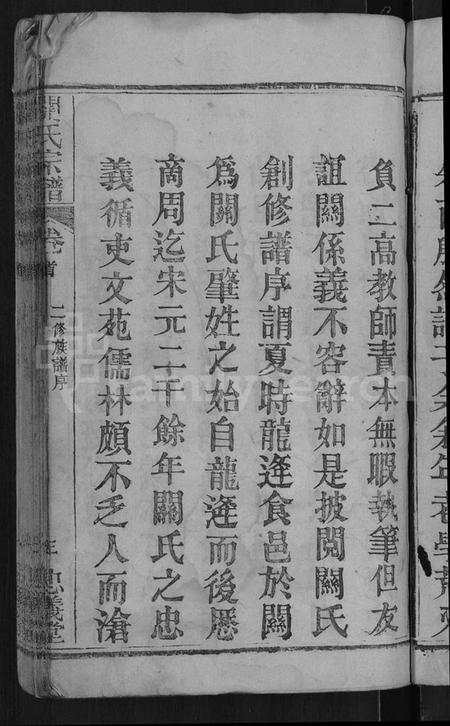 負二高教師責本無暇執筆但友
誼關係義不容辭如是披閲關氏
創修譜序謂夏時龍逄食邑於關
爲關氏肇姓之始自龍逄而後歷
商周迄宋元二千餘年關氏之忠
義循吏文苑儒林頗不乏人而滄
關氏宗譜
卷首
二修族譜序
忠義堂